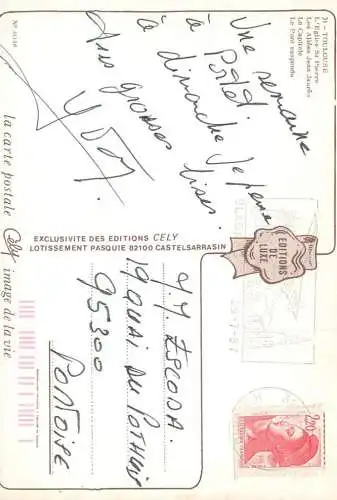 31 - TOULOUSE
L'Eglise St Pierre
Les Allées Jean Jaurès
Le Capitole
Le Pont suspendu
Une semaine
à Portet
à dimanche je pense
bises.
EXCLUSIVITE DES EDITIONS CELY
LOTISSEMENT PASQUIE 82100 CASTELSARRASIN
la carte postale Cely image de la vie
EDITIONS
DE
LUXE
2,20
ESCODA.
19 QUAI DU POTHUIS
95300
PONTOISE